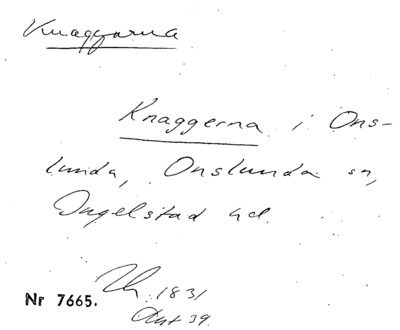 Knaggarna
Knaggerna i Ons-
lunda, Onslunda sn,
Ingelstad hd.
1831
Nr 7665.
Akt 39.